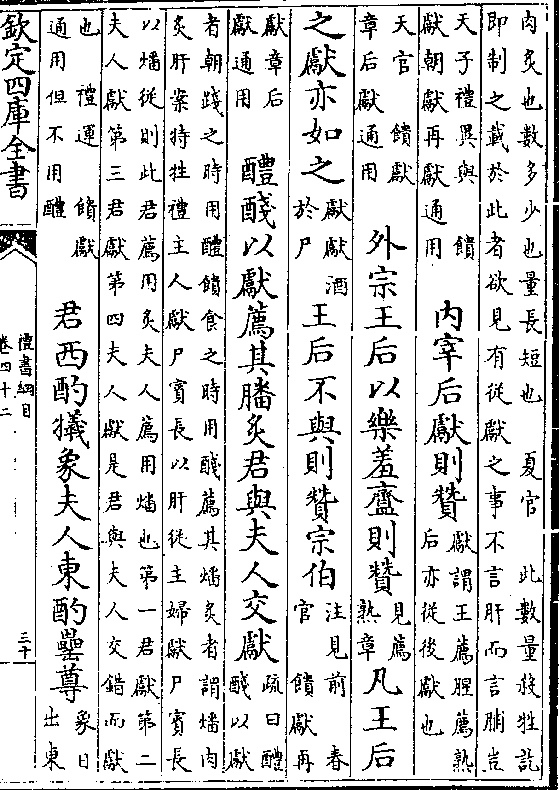 肉炙也數多少也量長短也　夏官　此數量殺牲訖
即制之載於此者欲見有從獻之事不言肝而言脯豈
天子禮異與　饋
獻朝獻再獻通用
内宰后獻則贊
獻謂王薦腥薦熟
后亦從後獻也
天官　饋獻
章后獻通用
外宗王后以樂羞齍則贊
見薦
熟章
凡王后
之獻亦如之
獻獻酒
於尸
王后不與則贊宗伯
注見前　春
官　饋獻再
獻章后
獻通用
醴醆以獻薦其膰炙君與夫人交獻
疏曰醴
醆以獻
者朝踐之時用醴饋食之時用醆薦其燔炙者謂燔肉
炙肝案特牲禮主人獻尸賓長以肝從主婦獻尸賓長
以燔從則此君薦用炙夫人薦用燔也第一君獻第二
夫人獻第三君獻第四夫人獻是君與夫人交錯而獻
也　禮運　饋獻
通用但不用醴
君西酌犧象夫人東酌罍尊
象日
出東
欽定四庫全書
禮書綱目
卷四十二
三十